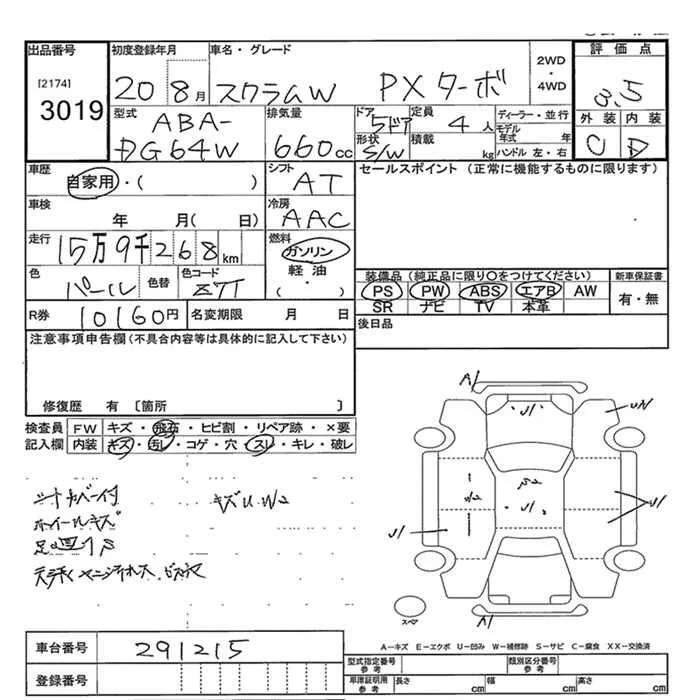 出品番号 初度登録年月 車名・グレード 評価点
[2174]
3019
20 8月 スクラムW PXターボ 2WD・4WD 3.5
型式 排気量 ドア 定員 ディーラー・並行 外装 内装
ABA-
DG64W 660cc 5ドア 4人 モデル年式 年 C D
形状 積載
S/W kg ハンドル 左・右
車歴 シフト セールスポイント (正常に機能するものに限ります)
自家用・( ) AT
車検 冷房
年 月( 日) AAC
走行 燃料
15万9千268km ガソリン
軽油
・
( )
色 色替 色コード
パール ZJ7
装備品 (純正品に限り○をつけてください) 新車保証書
PS PW ABS エアB AW 有・無
SR ナビ TV 本革
R券 10160円 名変期限 月 日 後日品
注意事項申告欄(不具合内容等は具体的に記入して下さい)
修復歴 有 〔箇所 〕
検査員 FW キズ・飛石・ヒビ割・リペア跡・×要
記入欄 内装 キズ・汚レ・コゲ・穴・スレ・キレ・破レ
シートカバー付 キズU.W2
ホイールキズ
A1
U1
U1
A1
スペア
A-キズ E-エクボ U-凹み W-補修跡 S-サビ C-腐食 XX-交換済
車台番号 291215
登録番号
型式指定番号 参考 類別区分番号 参考
車庫証明用 参考 長さ cm 幅 cm 高さ cm